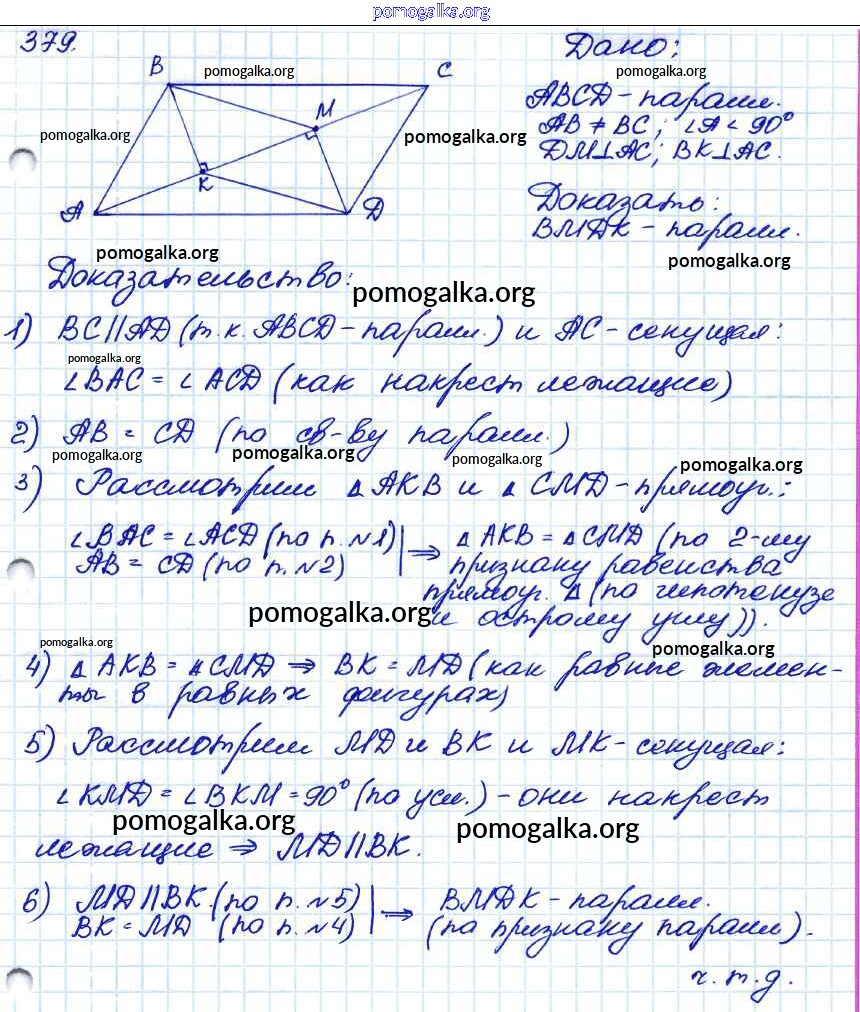 pomogalka.org
379.
B
pomogalka.org
C
M
pomogalka.org
K
A
D
pomogalka.org
Дано:
pomogalka.org
ABCD – паралл.
AB ≠ BC; ∠A < 90°
DM⊥AC; BK⊥AC.
pomogalka.org
Доказать:
BMDK – паралл.
pomogalka.org
pomogalka.org
Доказательство:
pomogalka.org
1) BC||AD (т.к. ABCD – паралл.) и AC – секущая:
pomogalka.org
∠BAC = ∠ACD (как накрест лежащие)
2) AB = CD (по св-ву паралл.)
pomogalka.org pomogalka.org pomogalka.org pomogalka.org
3) Рассмотрим △AKB и △CMD – прямоуг.:
∠BAC = ∠ACD (по п. №1) | ⇒ △AKB = △CMD (по 2-му
AB = CD (по п. №2) признаку равенства
прямоуг. △ (по гипотенузе
pomogalka.org
и острому углу)).
pomogalka.org pomogalka.org
4) △AKB = △CMD ⇒ BK = MD (как равные элемен-
ты в равных фигурах)
5) Рассмотрим MD и BK и MK – секущая:
∠KMD = ∠BKM = 90° (по усл.) – они накрест
pomogalka.org pomogalka.org
лежащие ⇒ MD||BK.
6) MD||BK (по п. №5) | ⇒ BMDK – паралл.
BK = MD (по п. №4) (по признаку паралл).
ч.т.д.